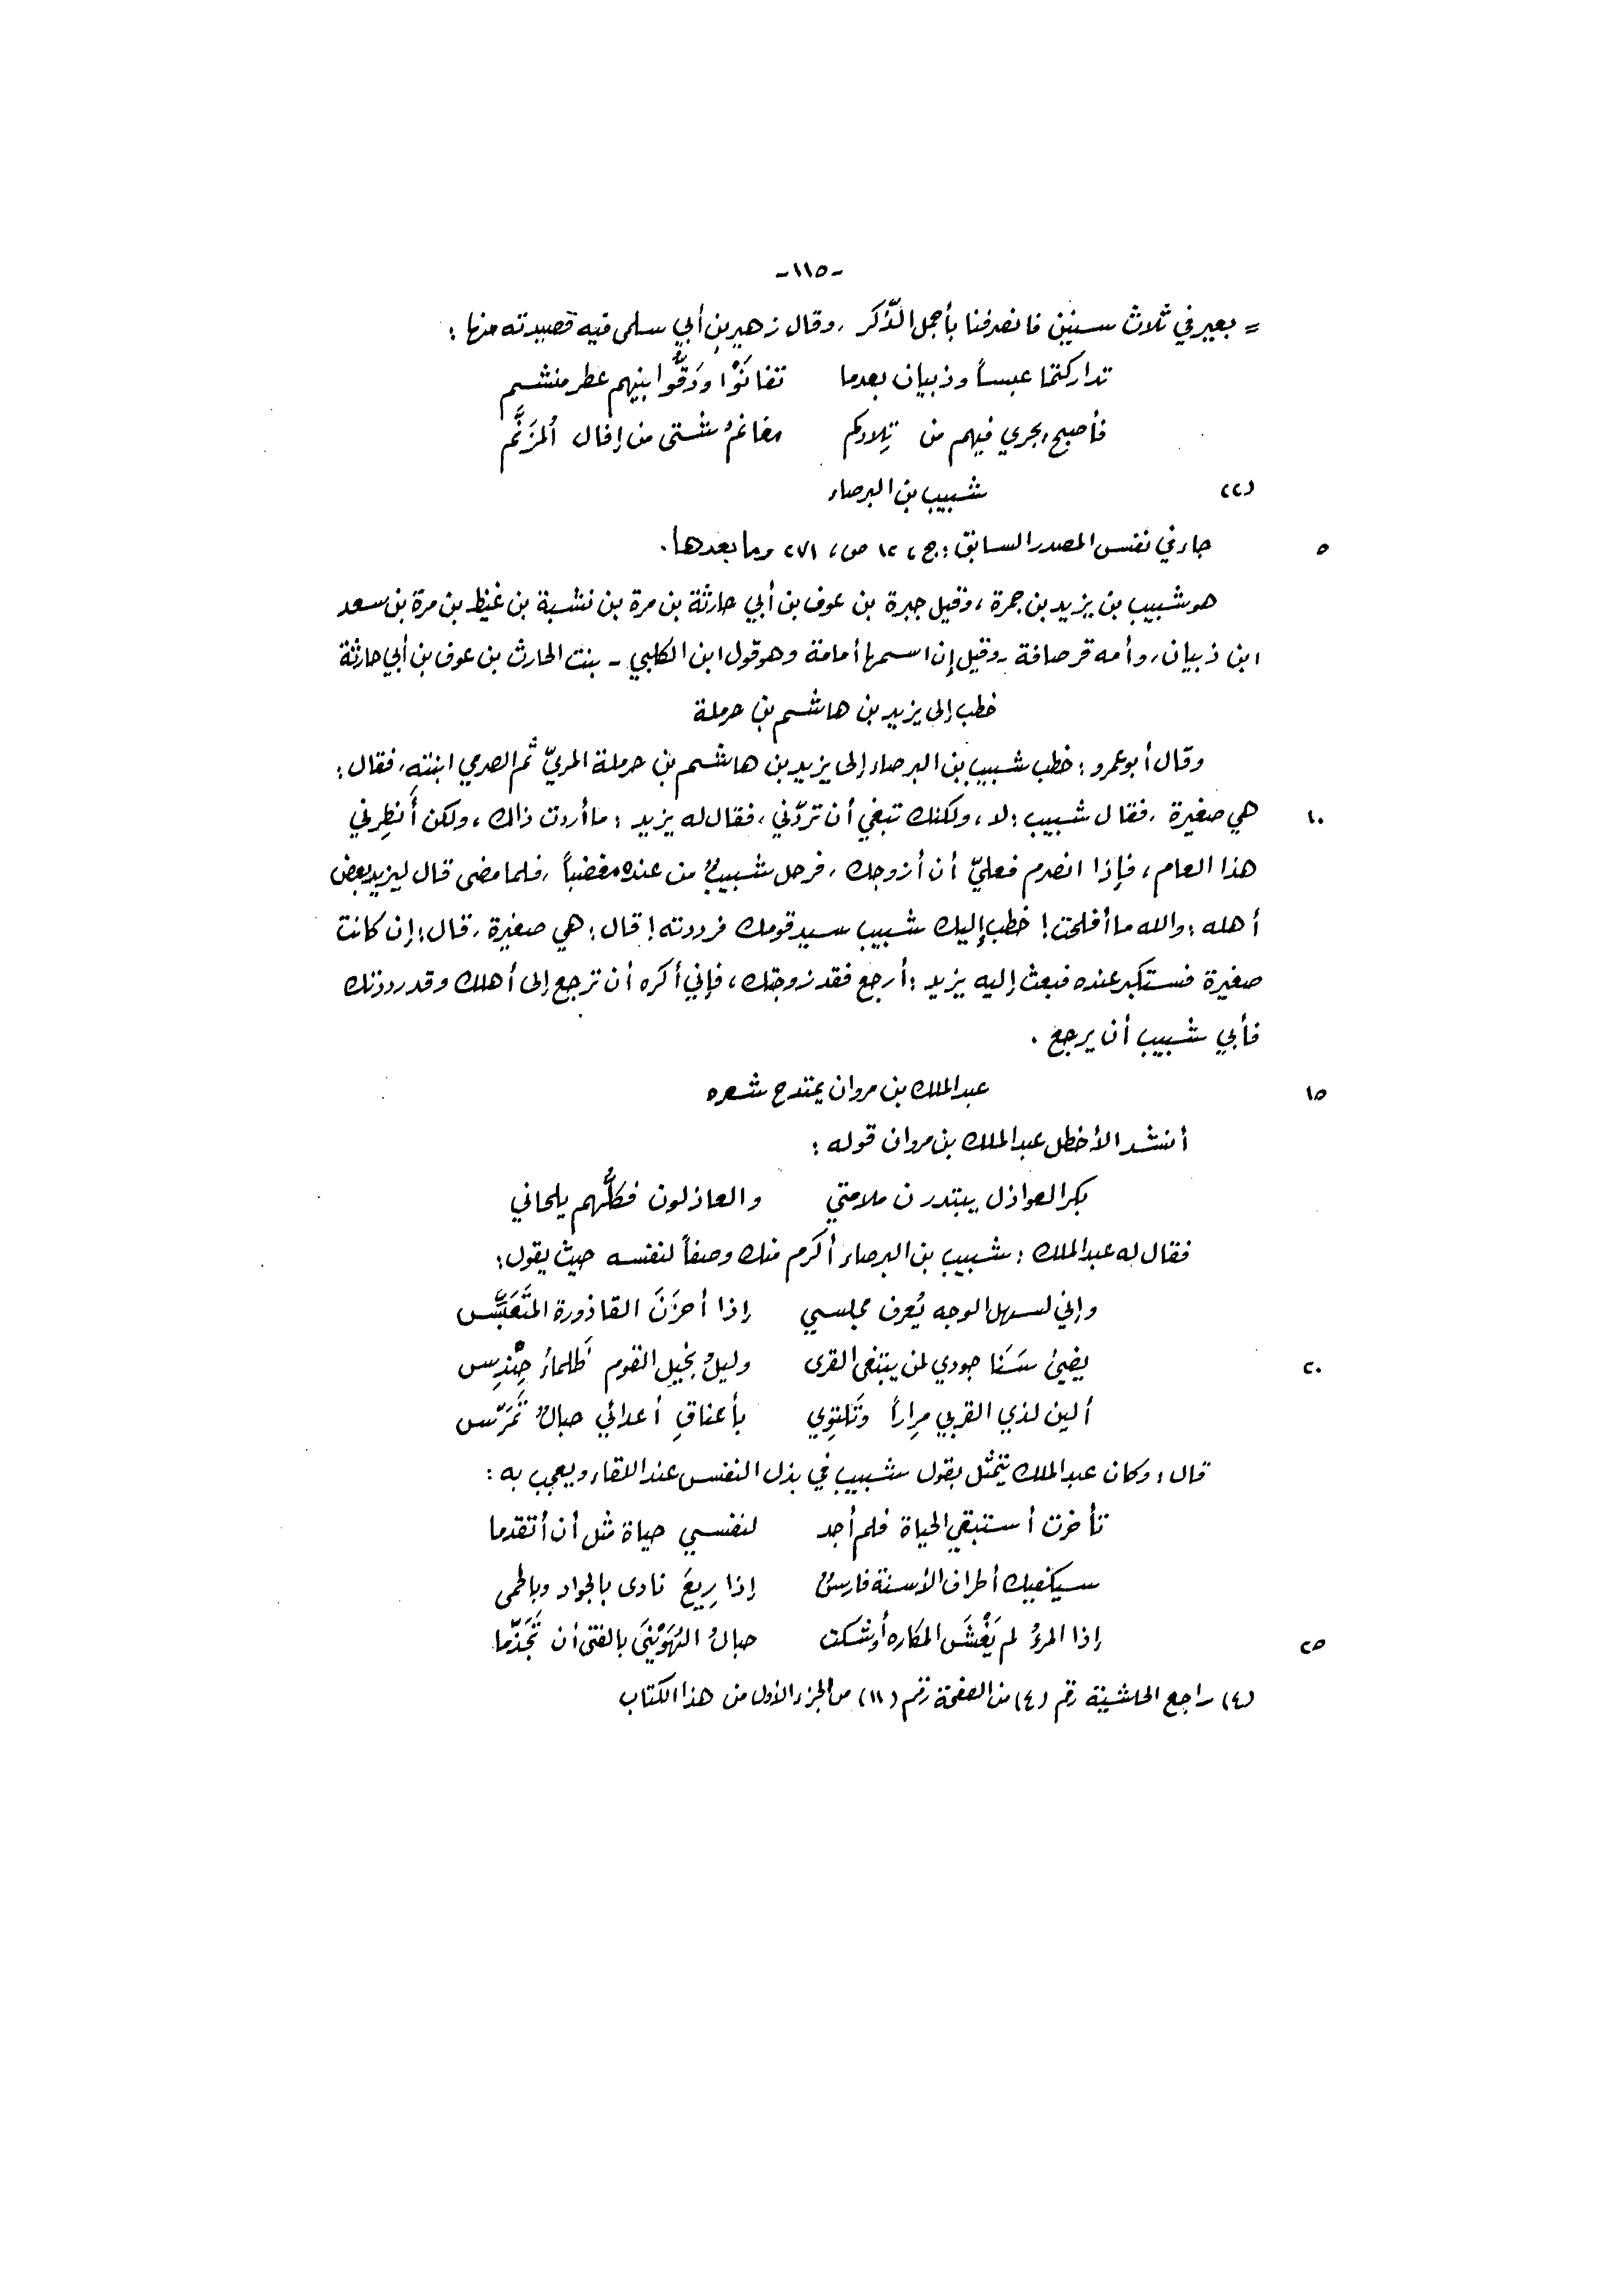 -١١٥-
= بعير في ثلاث سنين فانصرفنا بأجمل الذّكر، وقال زهير بن أبي سلمى فيه قصيدته منها:
تداركتما عبساً وذبيان بعدما تفانَوْا ودَقُّوا بينهم عطر منشم
فأصبح يجري فيهم من تِلادكم مغانمُ شتى من إفال المُزَنَّم
(٢٢) شبيب بن البرصاء
٥ جاء في نفس المصدر السابق: ج، ١٢ ص، ٢٧١ وما بعدها.
هو شبيب بن يزيد بن جمرة، وقيل جبرة بن عوف بن أبي حارثة بن مرة بن نشبة بن غيظ بن مرة بن سعد
ابن ذبيان، وأمه قرصافة - وقيل إن اسمها أمامة وهو قول ابن الكلبي - بنت الحارث بن عوف بن أبي حارثة
خطب إلى يزيد بن هاشم بن حرملة
وقال أبو عمرو: خطب شبيب بن البرصاء إلى يزيد بن هاشم بن حرملة المريّ ثم الصرمي ابنته، فقال:
١٠ هي صغيرة، فقال شبيب: لا، ولكنك تبغي أن تردّني، فقال له يزيد: ما أردت ذاك، ولكن أَنظِرني
هذا العام، فإذا انصرم فعليّ أن أزوجك، فرحل شبيبٌ من عنده مغضباً، فلما مضى قال ليزيد بعض
أهله: والله ما أفلحت! خطب إليك شبيب سيد قومك فرددته! قال: هي صغيرة، قال: إن كانت
صغيرة فستكبر عنده فبعث إليه يزيد: أرجع فقد زوجتك، فإني أكره أن ترجع إلى أهلك وقد رددتك
فأبي شبيب أن يرجع.
١٥ عبد الملك بن مروان يمتدح شعره
أنشد الأخطل عبد الملك بن مروان قوله:
بكر العواذل يبتدرن ملامتي والعاذلون فكلُّهم يلحاني
فقال له عبد الملك: شبيب بن البرصاء أكرم منك وصفاً لنفسه حيث يقول:
وإني لسهل الوجه يُعرف مجلسي إذا أحزَنَ القاذورة المتَعَبَّس
٢٠ يضيئ سَنَا جودي لمن يبتغي القرى وليلُ بخيلِ القوم ظَلماءُ حِنْدِس
ألين لذي القربي مِراراً وتَلتوِي بأعناقِ أعدائي حبالٌ تَمَرّس
قال: وكان عبد الملك يتمثل بقول شبيب في بذل النفس عند اللقاء ويعجب به:
تأخرت أستبقي الحياة فلم أجد لنفسي حياة مثل أن أتقدما
سيكفيك أطراف الأسنة فارسٌ إذا رِيعَ نادى بالجواد وبالحمى
٢٥ إذا المرءُ لم يَغْشَ المكاره أوشكت حبالُ الهُوَيْنَى بالفتى أن تَجَذّما
(٤) راجع الحاشية رقم (٤) من الصفحة رقم (١١) من الجزء الأول من هذا الكتاب